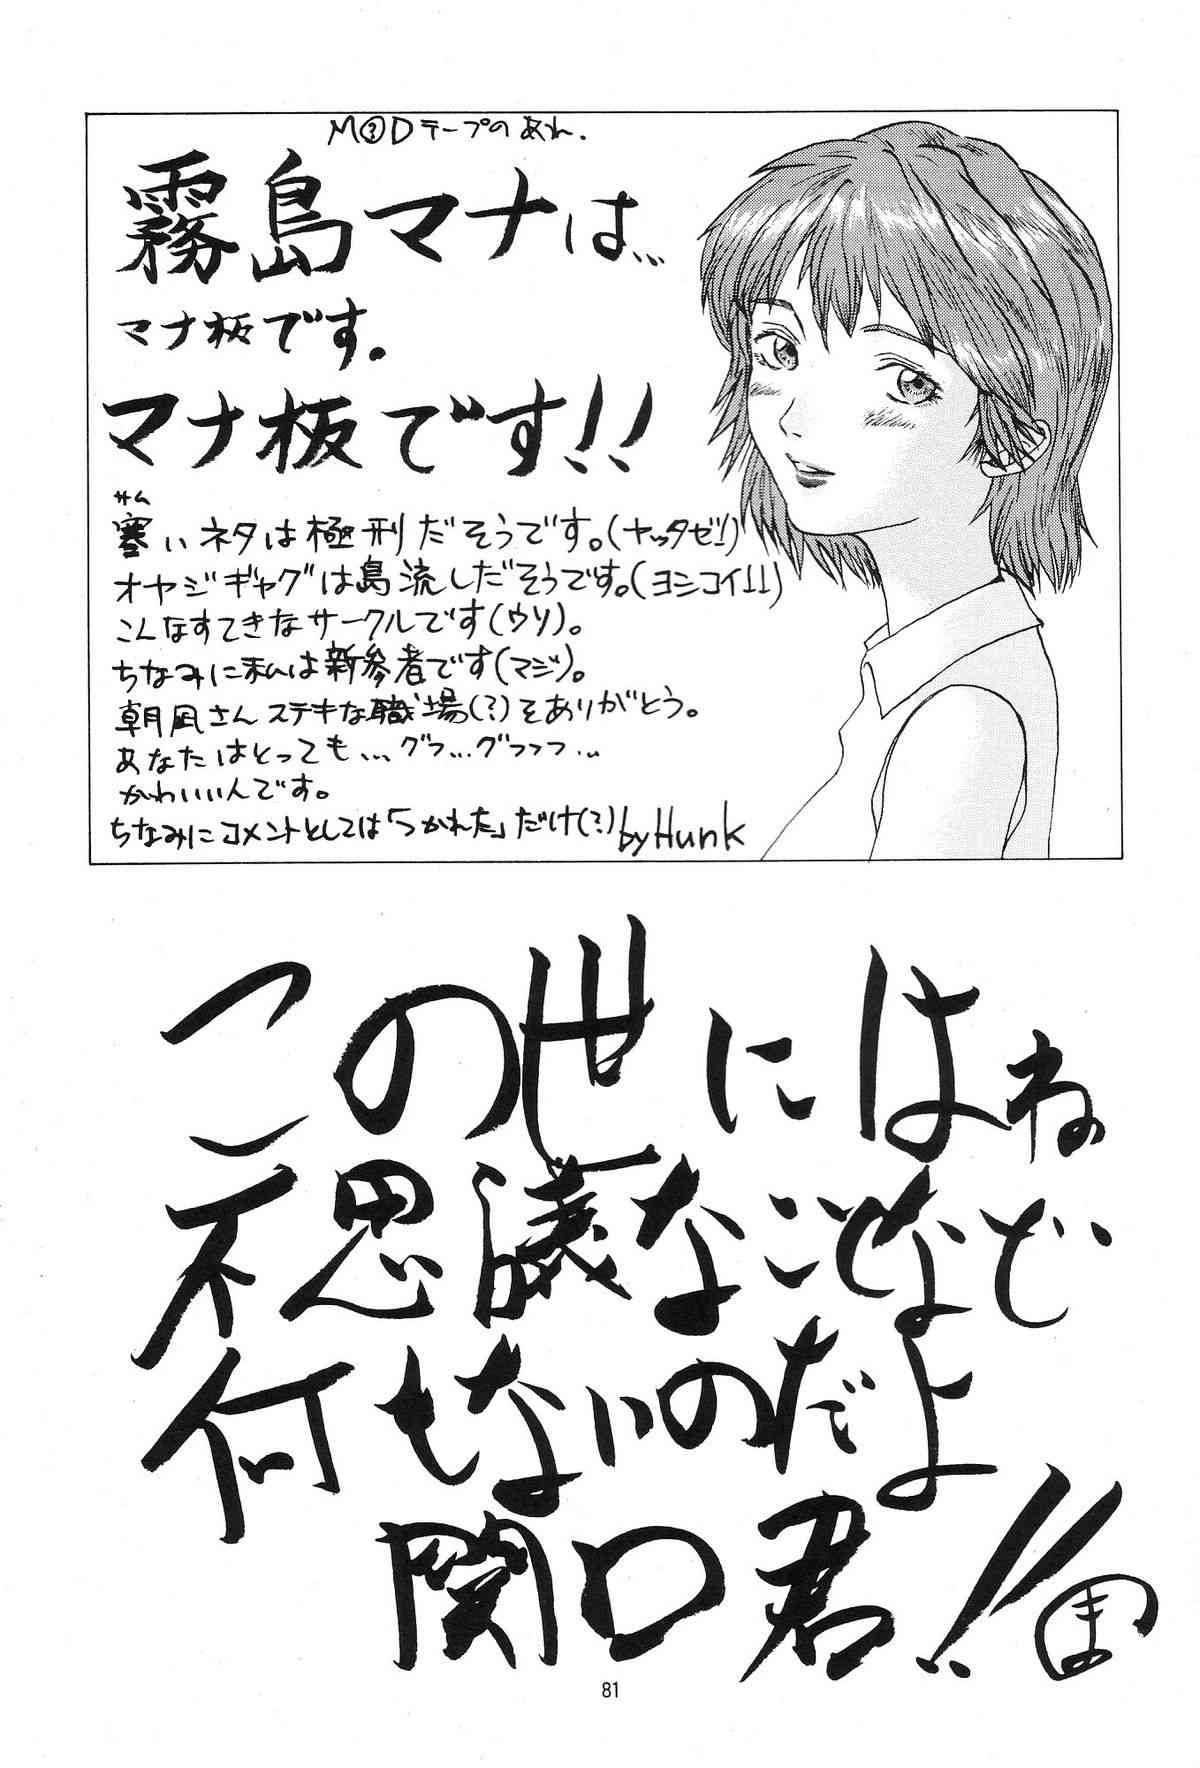 M?Dテープのあれ.
霧島マナは…
マナ板です。
マナ板です!!
サム
寒いネタは極刑だそうです。(ヤッタゼ!)
オヤジギャグは島流しだそうです。(ヨシコイ!!)
こんなすてきなサークルです(ウソ)。
ちなみに私は新参者です(マジ)。
朝凪さんステキな職場(?)をありがとう。
あなたはとっても…グフ…グフフフ…
かわいい人です。
ちなみにコメントとしては「つかれた」だけ(?) by Hunk
この世にはね
不思議なことなど
何もないのだよ
関口君!!
ま
81